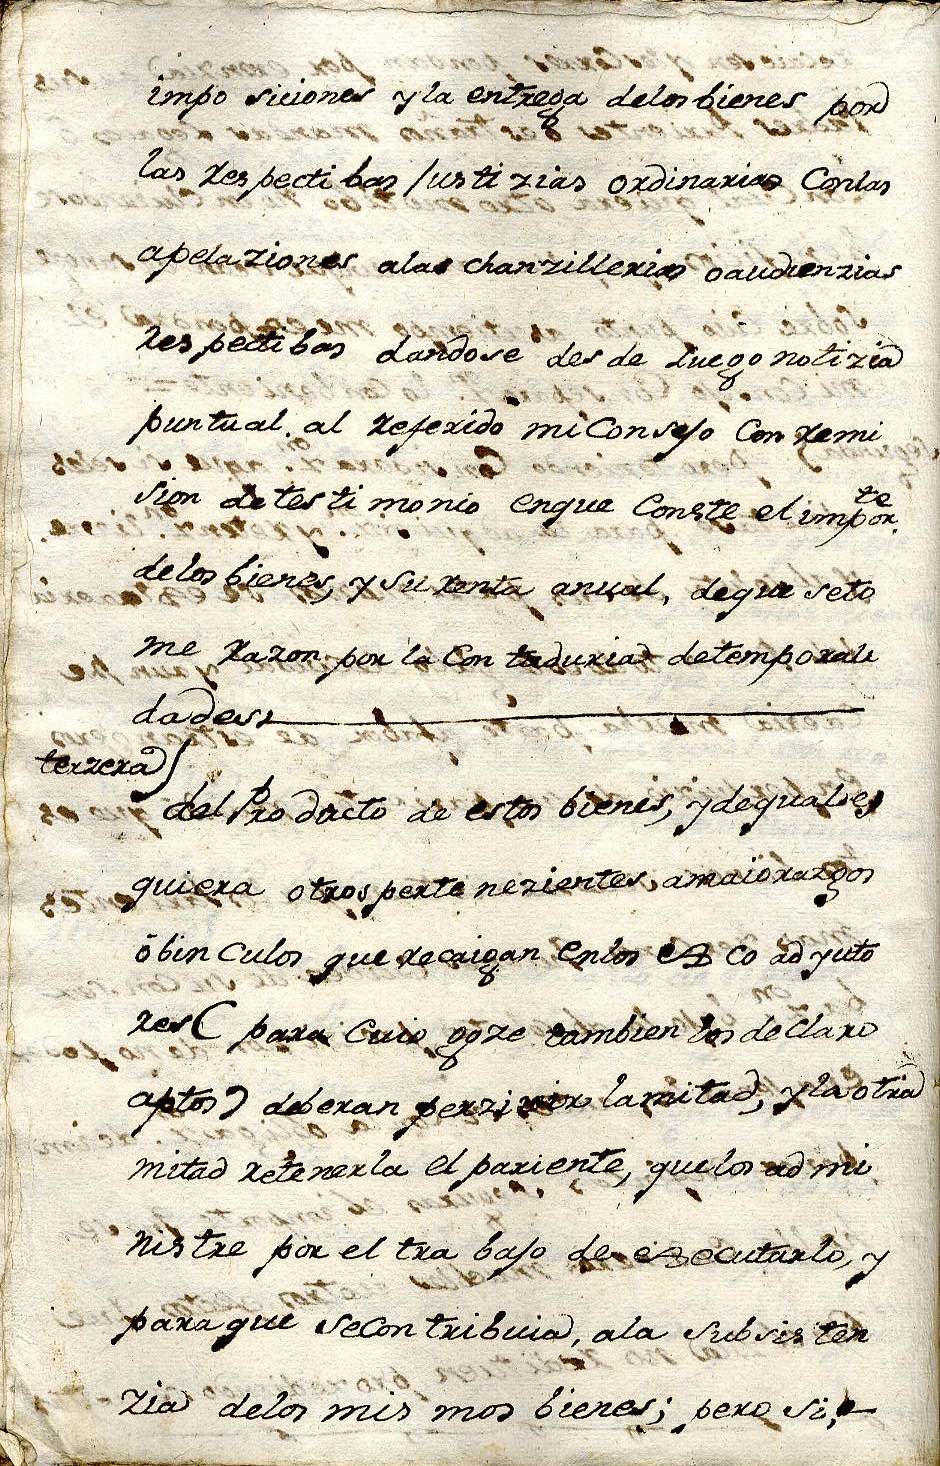 impo siciones y la entrega delos bienes por
las respecti bas Justi zias ordinarias Conlas
apelaziones alas chanzillerias o audienzias
res pectibas dandose des de luego notizia
puntual al referido mi Consejo Con remi
sion de tes ti monio enque Conste el impor.te
delos bienes, y su renta anual, de que se to
me razon por la Con taduria de temporali
dades
terzera)
del Producto de estos bienes, y de quales
quiera otros perte nezientes, a maiorazgos
ó bin Culos que recaigan en los ex co adyuto
res ( para Cuio goze tambien los declaro
aptos) deberan perzivir la mitad, y la otra
mitad retenerla el pariente, que los ad mi
nis tre por el tra bajo de executarlo, y
para que se Con tribuia, ala subsis ten
zia delos mis mos bienes; pero si,